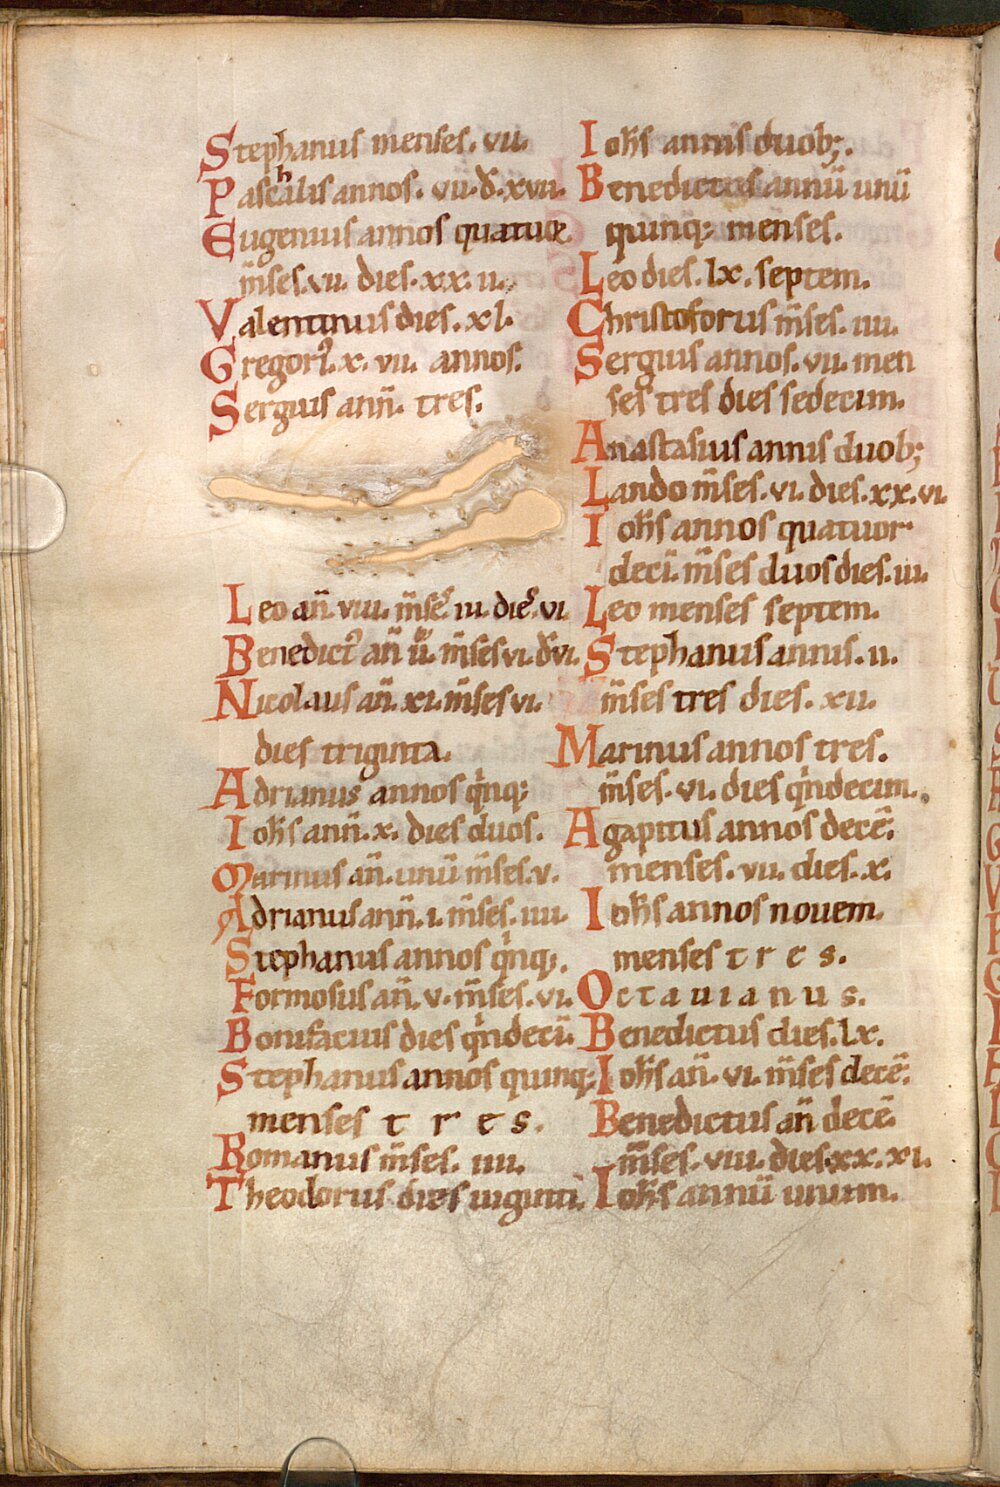 Stephanus menses. vii.
Paschalis annos. vii. d̄. xvii.
Eugenius annos quatuor
m̄ses. vii. dies. xx. ii.
Valentinus dies. xl.
Gregori᷒. x. vii. annos.
Sergius ann̄. tres.
Leo an̄ viii. m̄ses iii. dies. vi
Benedict᷒ an̄ ii. m̄ses vi. d̄ vi.
Nicolaus an̄. xi. m̄ses vi.
dies triginta.
Adrianus annos qͥnq;
Ioh̄s ann̄. x. dies duos.
Marinus an̄. unū m̄ses. v.
Adrianus ann̄. i. m̄ses. iiii.
Stephanus annos qͥnq;.
Formosus an̄. v. m̄ses. vi.
Bonifacius dies qͥndecī.
Stephanus annos quinq;
menses tres.
Romanus m̄ses. iiii.
Theodorus dies uiginti.
Ioh̄s annis duob;.
Benedictus annū unū
quinq; menses.
Leo dies. lx. septem.
Christoforus m̄ses. iiii.
Sergius annos. vii. men
ses tres dies sedecim.
Anastasius annis duob;
Lando m̄ses. vi. dies. xx. vi.
Ioh̄s annos quatuor
decī. m̄ses duos dies. iii.
Leo menses septem.
Stephanus annis. ii.
m̄ses tres dies. xii.
Marinus annos tres.
m̄ses. vi. dies qͥndecim.
Agapitus annos decē.
menses. vii. dies. x.
Ioh̄s annos nouem.
menses tres.
Octauianus.
Benedictus dies. lx.
Ioh̄s an̄. vi. m̄ses decē.
Benedictus an̄ decē
m̄ses. viii. dies xx. xi.
Ioh̄s annū unum.